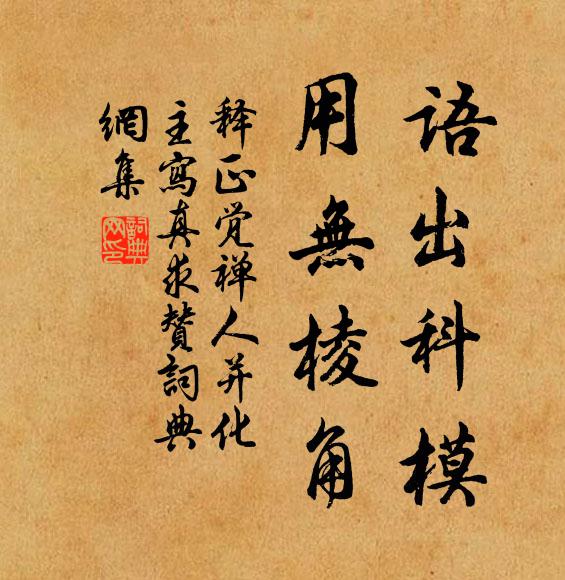 语出科模
用無棱角
释正觉禅人并化
主寫真求贊詞典
網集
詞典
网印